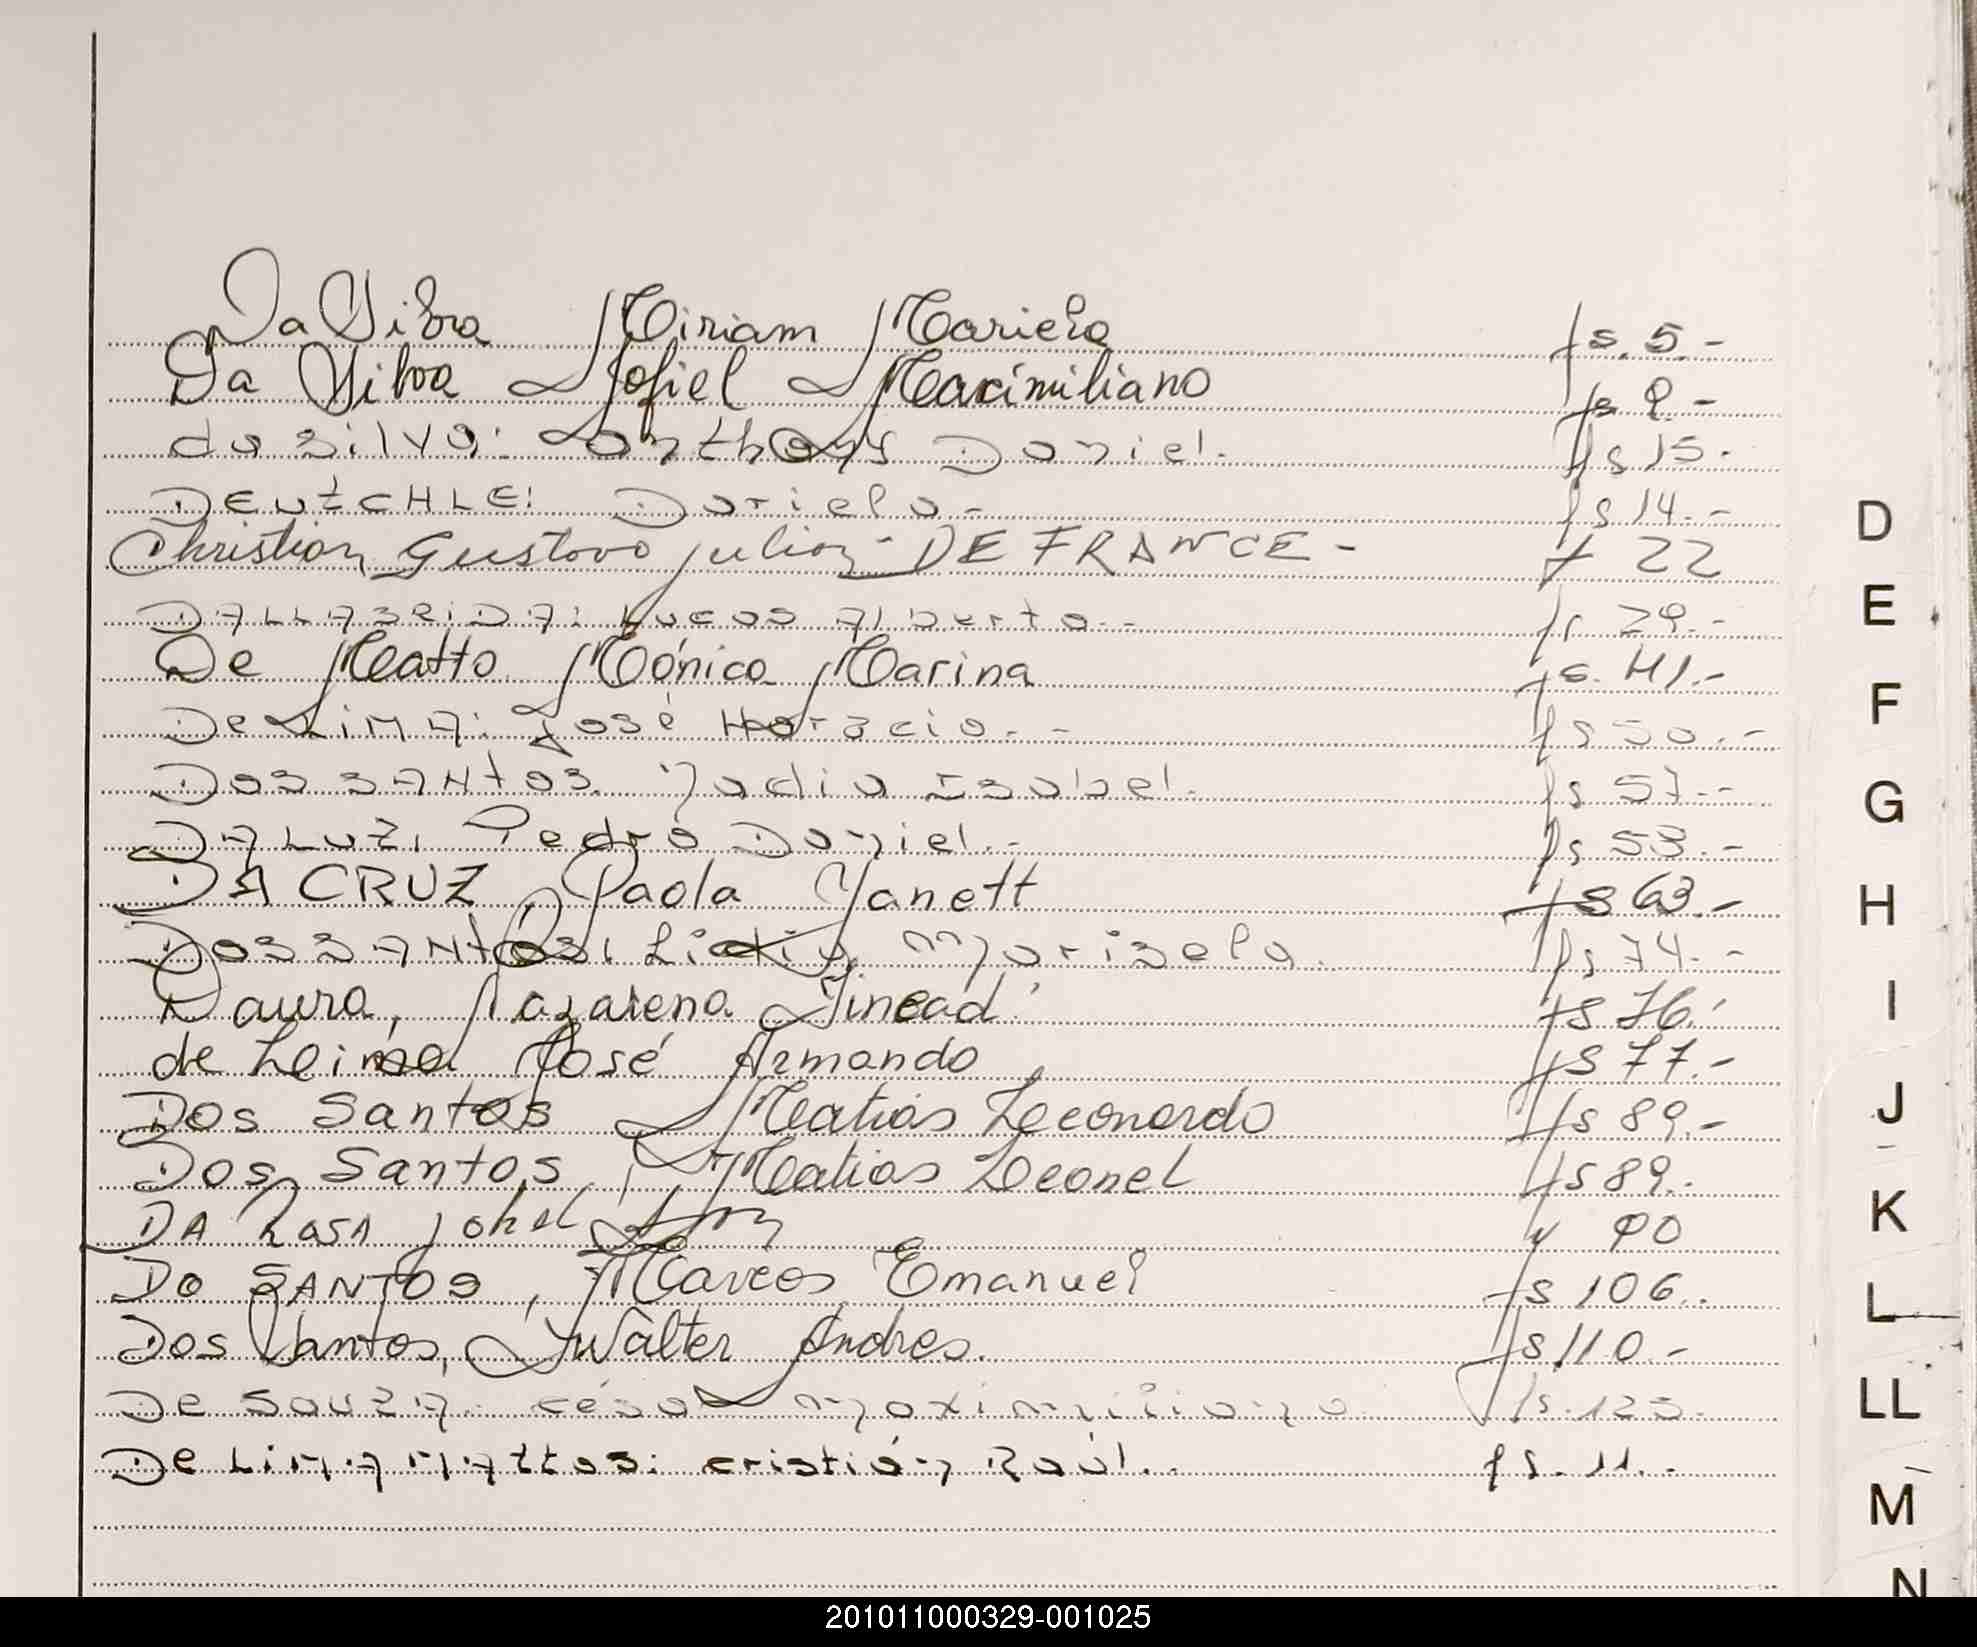 Da Silva Miriam Mariela fs. 5.-
Da Silva Jofiel Maximiliano fs 9.-
da silva: anthony Daniel. fs 15.-
DEUtCHLE: Dariela.- fs 14.-
Christian Gustavo julian - DE FRANCE - f 22
Lucas Alberto.- fs 29.-
De Matto Mónica Marina fs. 41.-
De LiMA: José Horacio.- fs 50.-
Dos sANtos. Nadia Isabel. fs 57.-
DA LUZ, Pedro Daniel.- fs 53.-
DA CRUZ, Paola Yanett fs 63.-
Dos sANtos, Lidia Marisela. fs 74.-
Daura, Nazarena Sinead. fs 76.-
de Leima José Armando fs 77.-
Dos Santos, Matias Leonardo fs 89.-
Dos Santos, Matias Leonel fs 89.-
DA ROSA Johel f 90
DO SANTOS, Marcos Emanuel fs 106.-
Dos Santos, Walter Andres. fs 110.-
De Souza: césar maximiliano fs. 123.-
De LiMA MAttos: cristián Raúl.. fs. 11.-
D
E
F
G
H
I
J
K
L
LL
M
N
201011000329-001025